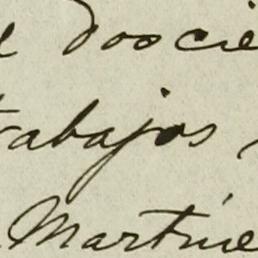 e doscie
trabajos
Martíne